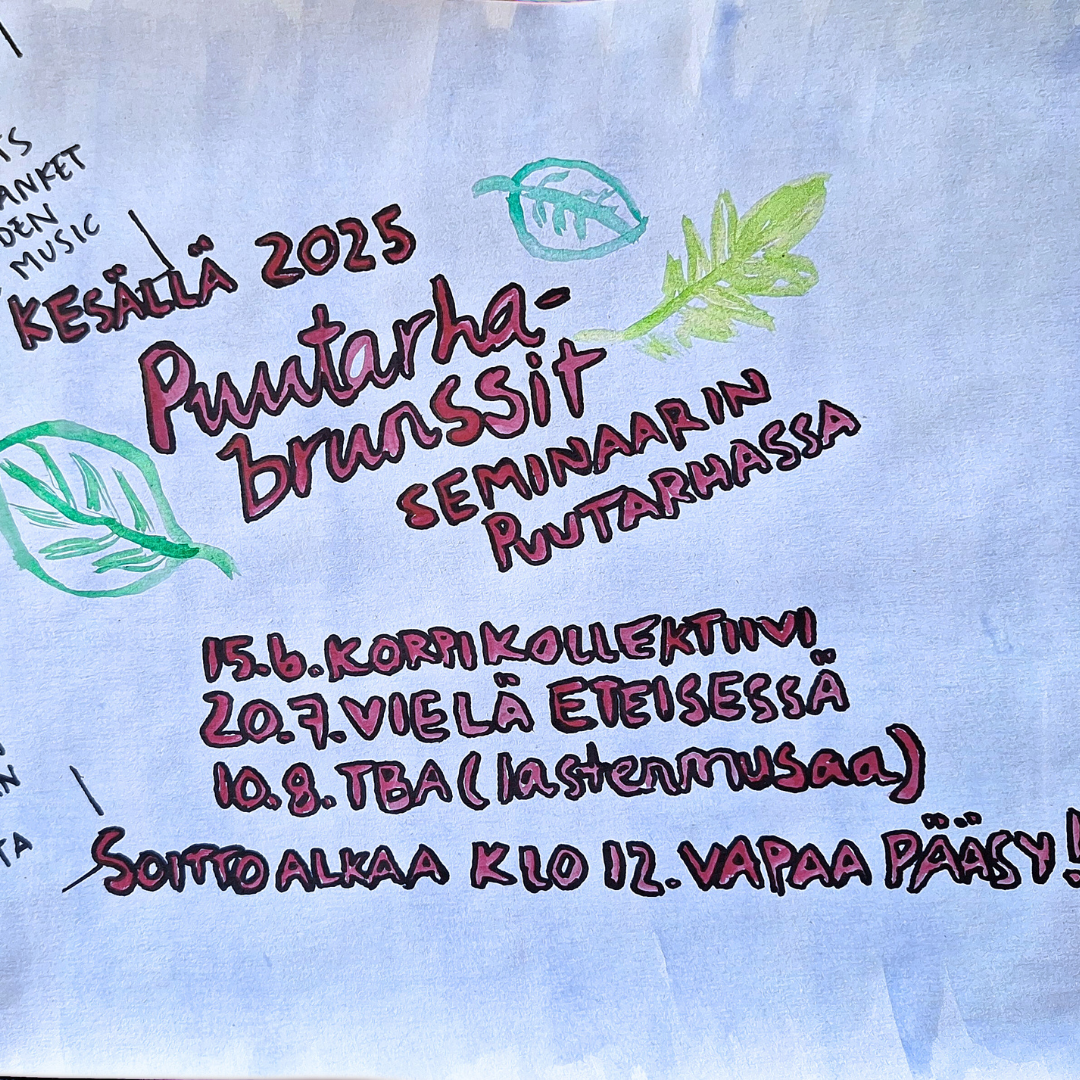 MUSIC
KESÄLLÄ 2025
Puutarha-
brunssit
SEMINAARIN
PUUTARHASSA
15.6. KORPIKOLLEKTIIVI
20.7. VIELÄ ETEISESSÄ
10.8. TBA (lastenmusaa)
SOITTO ALKAA KLO 12. VAPAA PÄÄSY!